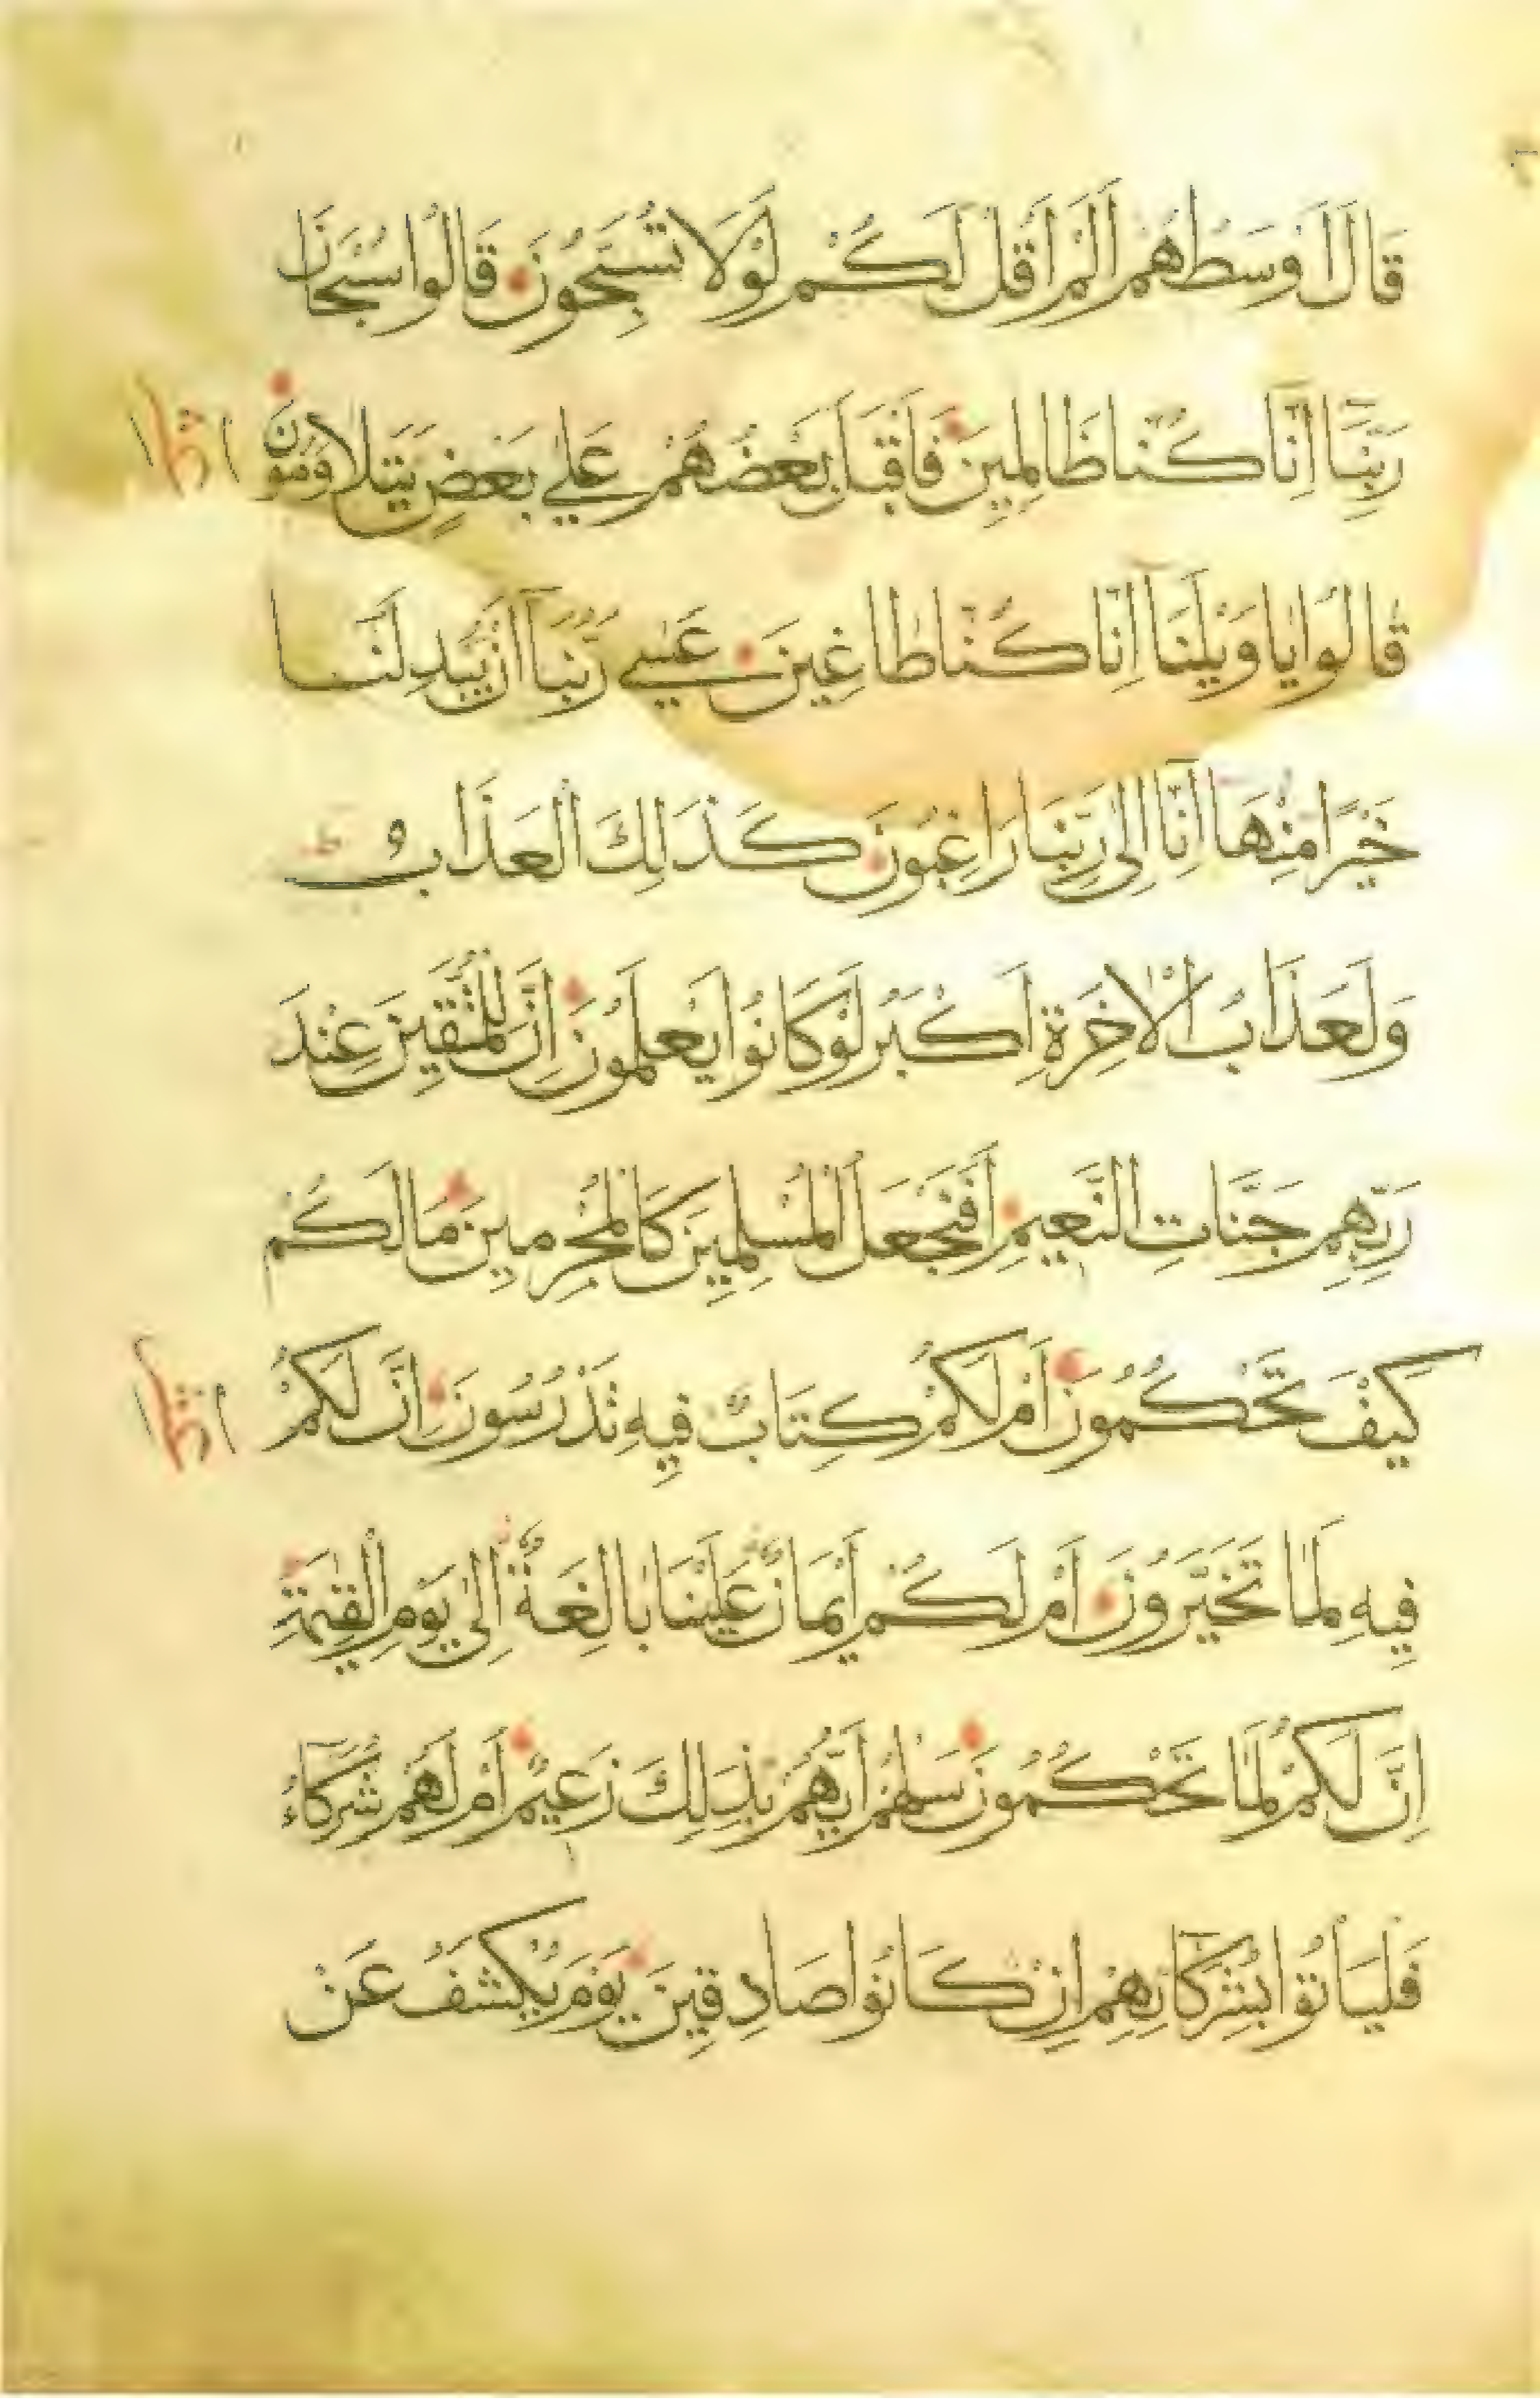 قَالَ اَوْسَطُهُمْ اَلَمْ اَقُلْ لَكُمْ لَوْلَا تُسَبِّحُونَ قَالُوا سُبْحَانَ
رَبِّنَا اِنَّا كُنَّا ظَالِمِينَ فَاَقْبَلَ بَعْضُهُمْ عَلَى بَعْضٍ يَتَلَاوَمُونَ
قَالُوا يَا وَيْلَنَا اِنَّا كُنَّا طَاغِينَ عَسَى رَبُّنَا اَنْ يُبْدِلَنَا
خَيْرًا مِنْهَا اِنَّا اِلَى رَبِّنَا رَاغِبُونَ كَذَلِكَ الْعَذَابُ
وَلَعَذَابُ الْاٰخِرَةِ اَكْبَرُ لَوْ كَانُوا يَعْلَمُونَ اِنَّ لِلْمُتَّقِينَ عِنْدَ
رَبِّهِمْ جَنَّاتِ النَّعِيمِ اَفَنَجْعَلُ الْمُسْلِمِينَ كَالْمُجْرِمِينَ مَا لَكُمْ
كَيْفَ تَحْكُمُونَ اَمْ لَكُمْ كِتَابٌ فِيهِ تَدْرُسُونَ اِنَّ لَكُمْ
فِيهِ لَمَا تَخَيَّرُونَ اَمْ لَكُمْ اَيْمَانٌ عَلَيْنَا بَالِغَةٌ اِلَى يَوْمِ الْقِيٰمَةِ
اِنَّ لَكُمْ لَمَا تَحْكُمُونَ سَلْهُمْ اَيُّهُمْ بِذَلِكَ زَعِيمٌ اَمْ لَهُمْ شُرَكَاءُ
فَلْيَأْتُوا بِشُرَكَائِهِمْ اِنْ كَانُوا صَادِقِينَ يَوْمَ يُكْشَفُ عَنْ